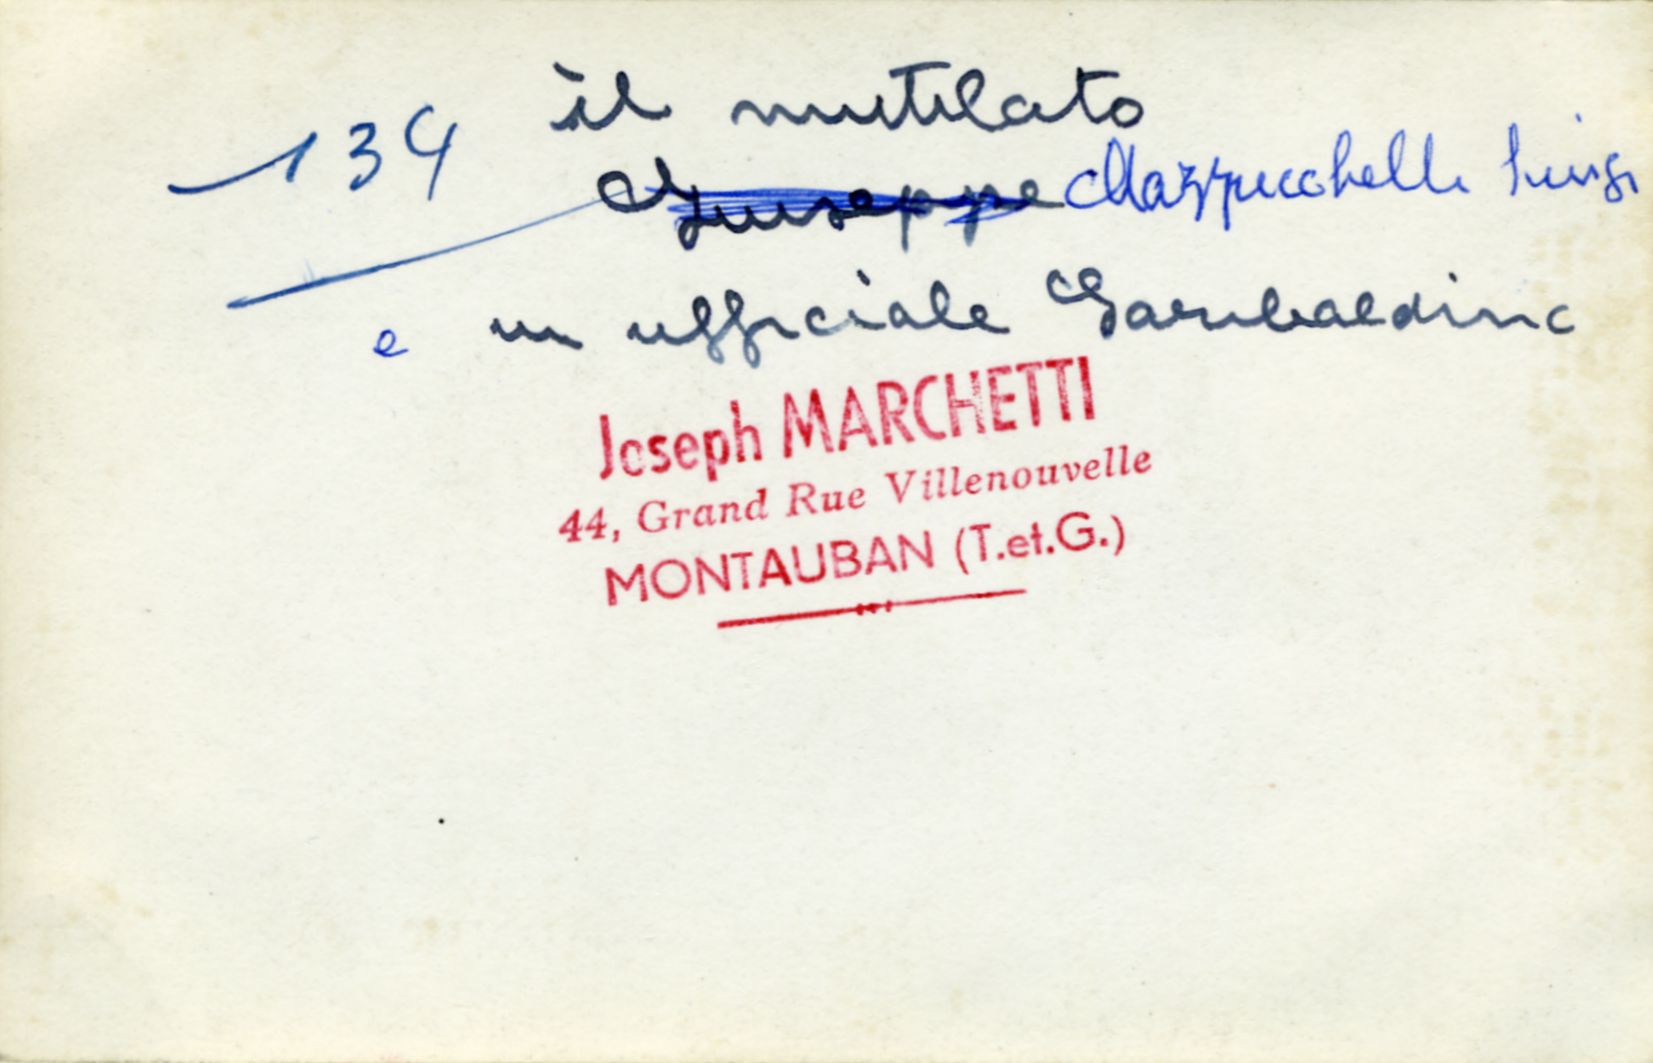 134
il mutilato
Giuseppe Mazzucchelli Luigi
e un ufficiale Garibaldino
Joseph MARCHETTI
44, Grand Rue Villenouvelle
MONTAUBAN (T.et.G.)